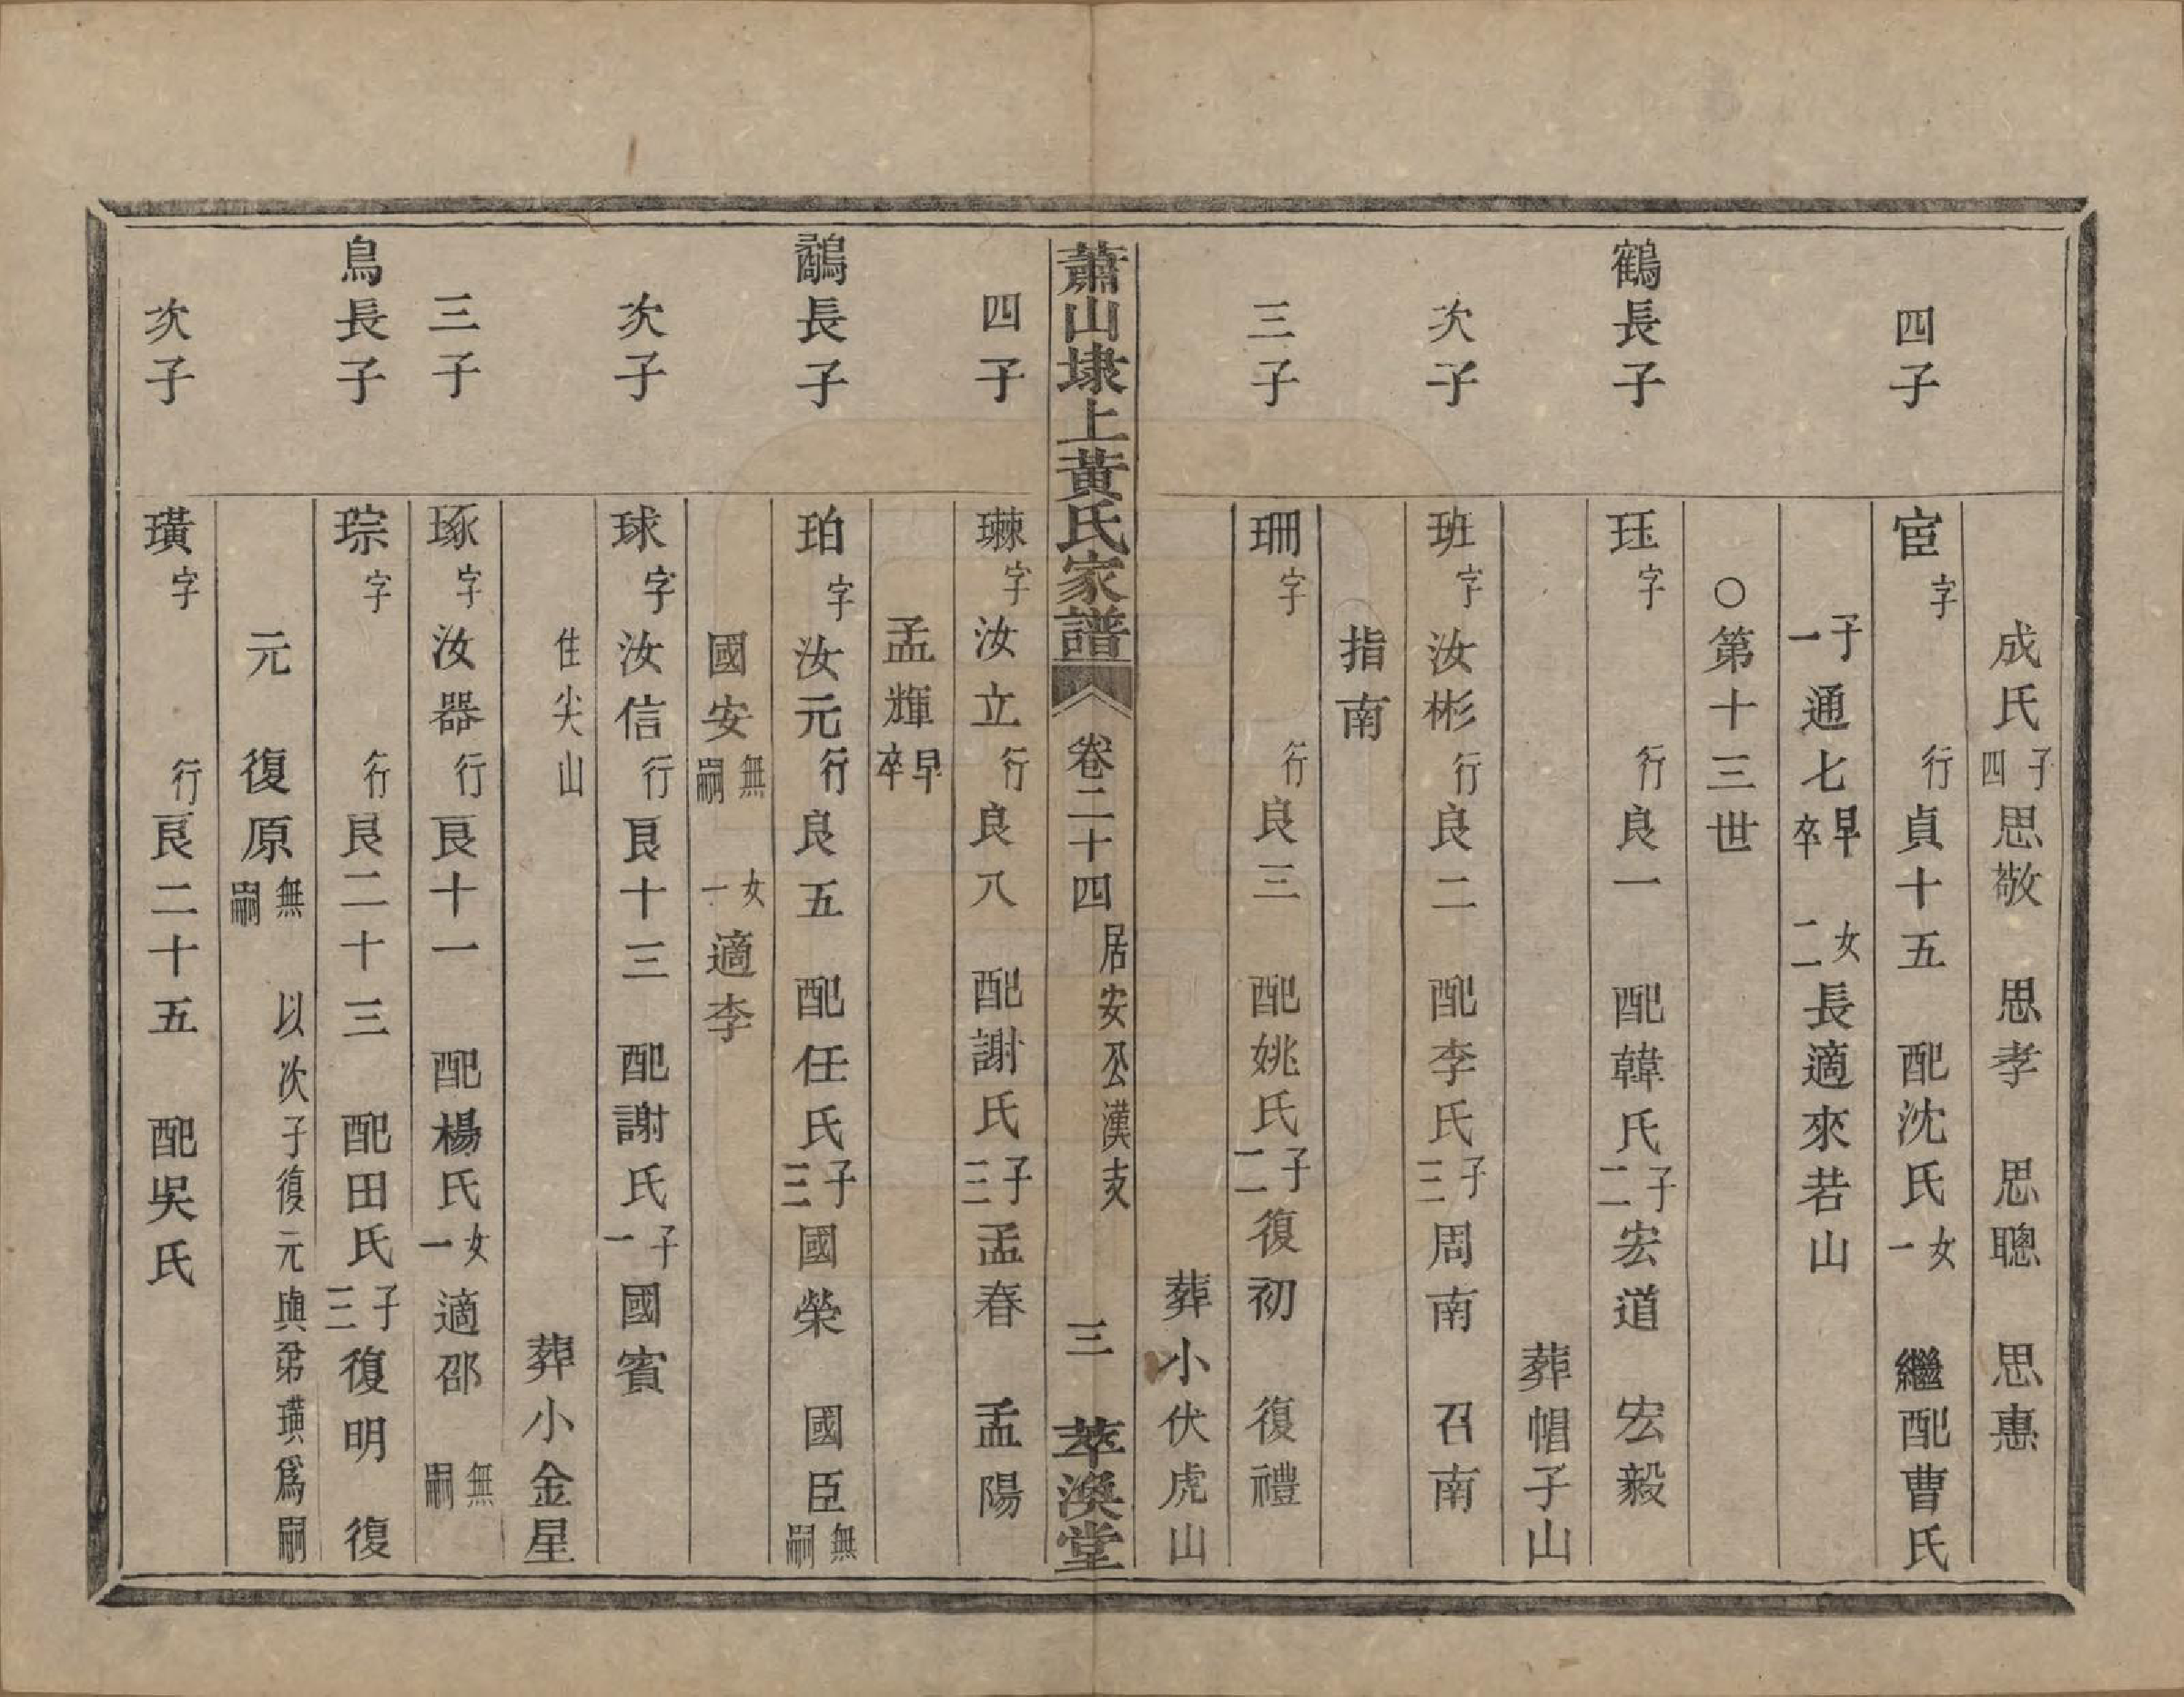 成氏子四思敬　思孝　思聰　思惠
四子　宦字　行貞十五　配沈氏女一　繼配曹氏
子一通七早卒　女二長適來若山
○第十三世
鶴長子　珏字　行良一　配韓氏子二宏道　宏毅
葬帽子山
次子　班字汝彬行良二　配李氏子三周南　召南
指南
三子　珊字　行良三　配姚氏子二復初　復禮
葬小伏虎山
蕭山埭上黃氏家譜　卷二十四　居安公漢支　三　萃渙堂
四子　字汝立行良八　配謝氏子三孟春　孟陽
孟輝早卒
鷸長子　珀字汝元行良五　配任氏子三國榮　國臣無嗣
國安無嗣　女一適李
次子　球字汝信行良十三　配謝氏子一國賓
住尖山　葬小金星
三子　琢字汝器行良十一　配楊氏女一適邵　無嗣
鳥長子　琮字　行良二十三　配田氏子三復明　復
元　復原無嗣　以次子復元與弟璜爲嗣
次子　璜字　行良二十五　配吳氏